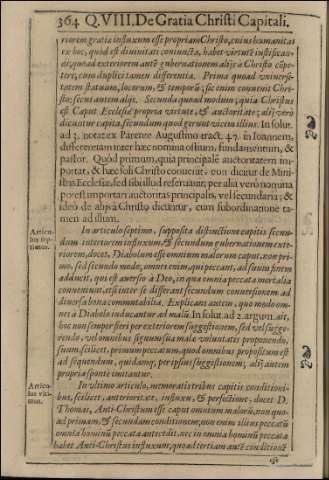 364 Q. VIII. De Gratia Christi Capitali.
riorem gratiæ influxum esse propriam Christo, cuius humanitas
ex hoc, quod est diuinitati coniuncta, habet virtutẽ iustifican-
di; quoad exteriorem autẽ gubernationem alijs à Christo cõpe-
tere, cum duplici tamen differentia. Prima quoad vniuersi-
tatem statuum, locorum, & temporũ; sic enim conuenit Chri-
sto; secus autem alijs. Secunda quoad modum; quia Christus
est Caput Ecclesiæ propria virtute, & auctoritate; alij verò
dicuntur capita, secundum quod gerunt vicem illius. In solut.
ad 3. notat ex Parente Augustino tract. 47. in Ioannem,
differentiam inter hæc nomina ostium, fundamentum, &
pastor. Quòd primum, quia principalẽ auctoritatem im-
portat, & hæc soli Christo conuenit, non dicitur de Mini-
stris Ecclesiæ, sed sibi illud reseruauit; per alia verò nomina
potest importari auctoritas principalis, vel secundaria; &
ideò de alijs à Christo dicuntur, cum subordinatione ta-
men ad illum.
Articu-
lus sep-
timus.
In articulo septimo, supposita distinctione capitis secun-
dum interiorem influxum, & secundum gubernationem exte-
riorem, docet, Diabolum esse omnium malorum caput, non pri-
mo, sed secundo modo, omnes enim, qui peccant, ad suum finem
adducit, qui est auersio à Deo, in qua omnia peccata mortalia
conueniunt, etsi inter se differant secundum conuersionem ad
diuersa bona commutabilia. Explicans autem, quo modo om-
nes à Diabolo inducantur ad malũ. In solut. ad 2. argum. ait,
hoc non semper fieri per exteriorem suggestionem, sed vel sugge-
rendo, vel omnibus signum suæ malæ voluntatis proponendo,
suum, scilicet, primum peccatum, quod omnibus propositum est
ad sequendum, quidamq; per ipsius suggestionem; alij autem
propria sponte imitantur.
Articu-
lus vlti-
mus.
In vltimo articulo, memoratis tribus capitis conditioni-
bus, scilicet, anterioritate, influxu, & perfectione, docet D.
Thomas, Anti-Christum esse caput omnium malorũ, non quo-
ad primam, & secundam conditionem; non enim illius peccatũ
omnia hominũ peccata antecedit, nec in omnia hominũ peccata
habet Anti-Christus influxum, quoad tertiam autẽ conditionẽ